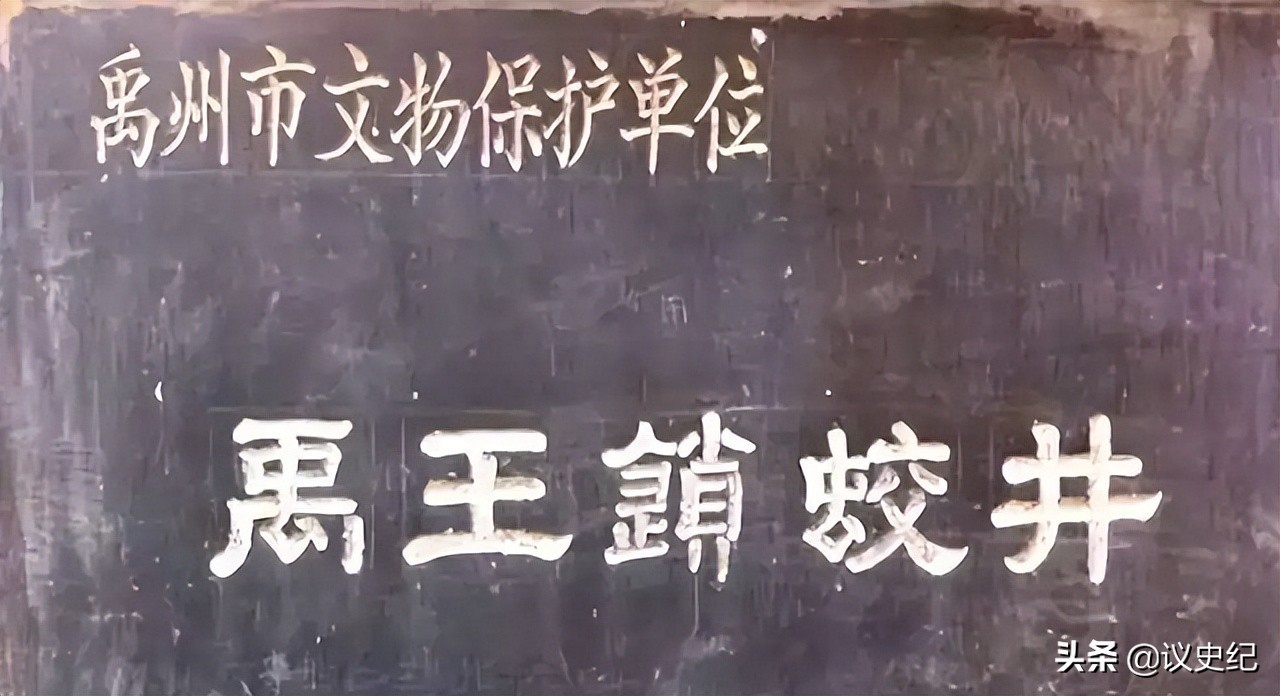 禹州市文物保护单位
禹王鎖蛟井
头条 @议史纪